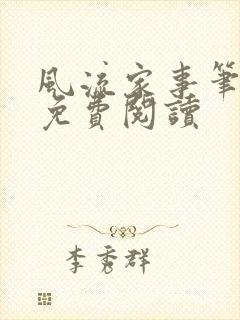 風流家事筆
免費閱讀
李秀群